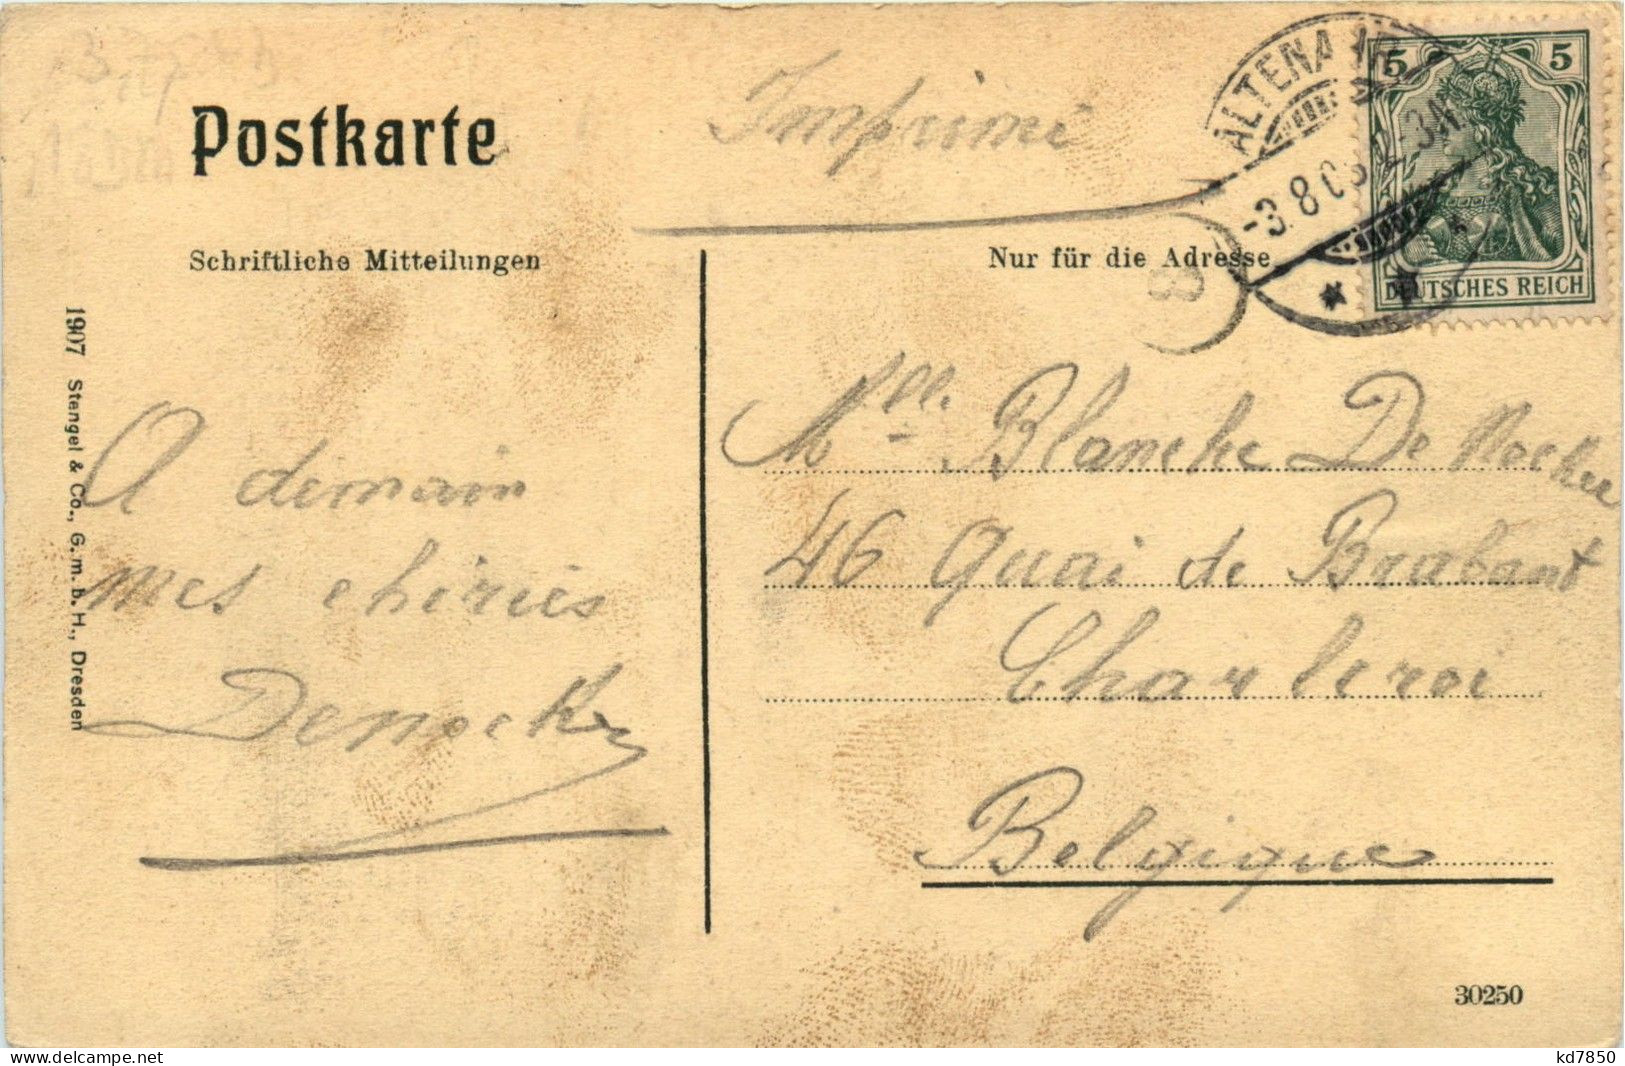 Postkarte
Imprimé
ALTENA
-3.8.08
Schriftliche Mitteilungen
Nur für die Adresse
5 5
DEUTSCHES REICH
8
1907 Stengel & Co., G.m.b.H., Dresden
A demain
mes chéries
Denocker
Mlle. Blanche De Nocker
46 Quai de Brabant
Charleroi
Belgique
30250
kd7850